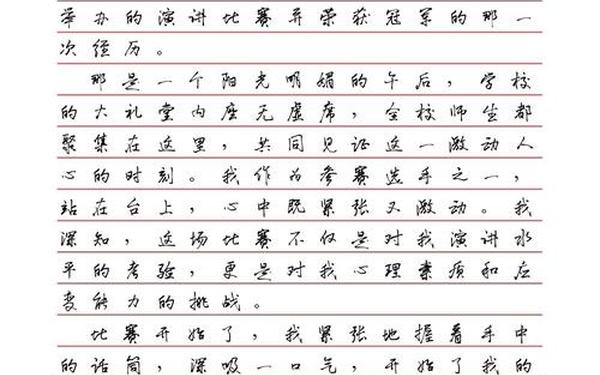 举办的演讲比赛并荣获冠军的那一
次经历。
那是一个阳光明媚的午后，学校
的大礼堂内座无虚席，全校师生都
聚集在这里，共同见证这一激动人
心的时刻。我作为参赛选手之一，
站在台上，心中既紧张又激动。我
深知，这场比赛不仅是对我演讲水
平的考验，更是对我心理素质和应
变能力的挑战。
比赛开始了，我紧张地握着手中
的话筒，深吸一口气，开始了我的